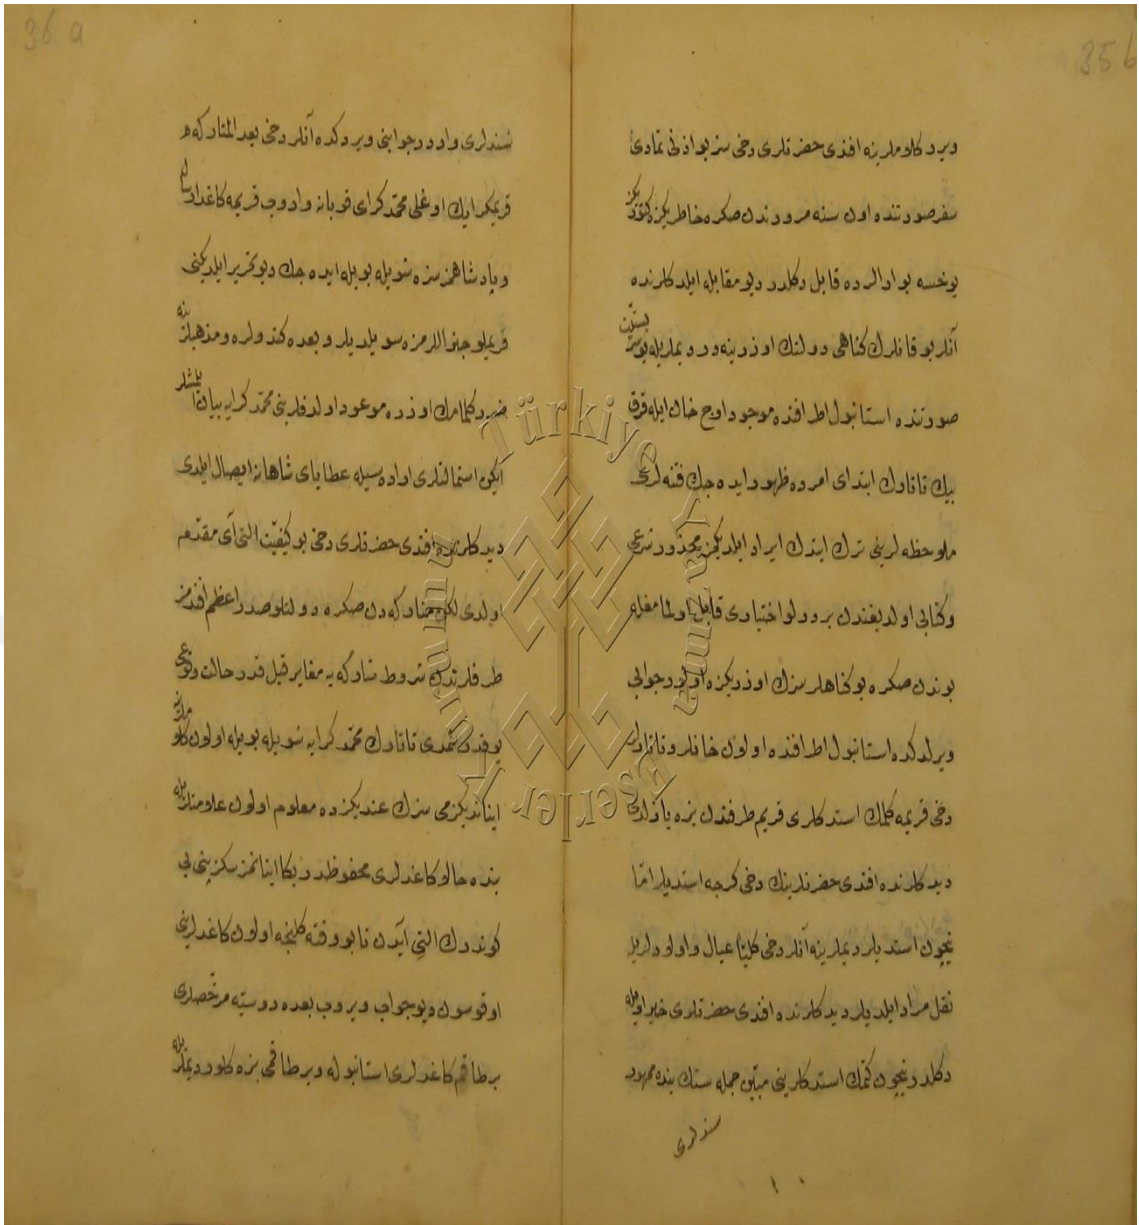 35b
ویرر کلاملرینه افندی حضرتلری دخی سز بو اذنی تمادیء
سفر صورتنده اون سنه مروردن صکره خاطریکزه کتورد یکز
یوخسه بو اوالرده قابل دکلدر دیو مقابله ایلدکلرنده
آنلر بو قانلرك کناهی دولتك اوزرینه در دیملریله بو
صورتده استانبول اطرافنده موجود اوچ خان ایله قرق
بیك تاتارك ابتدای امرده ظهور ایده جك فتنه لری
ملاحظه لرینی ترك ایدك ایراد ایلدیکز محذور شرعی
و کتابی اولدیغندن بر دورلو اختیاری قابل اولما مغله
بوندن صکره بو کناهلر سزك اوزریکزه اولور جوابی
ویرلدکده استانبول اطرافنده اولان خانلر و تاتارلر
دخی قریمه کلمك استدکلری قریم طرفندن بزه یازلدی
دیدکلرنده افندی حضرتلرینك دخی کرچه استدیلر امّا
نیچون استدیلر دیملرینه آنلر دخی کلیّتا عیال و اولادلریله
نقل مراد ایلدیلر دیدکلرنده افندی حضرتلری خیر اویله
دکلدر نیچون کتمك استدکلرینی مبیّن جمله سنك بنده ممهور
سندلری
36a
سندلری واردر جوابنی ویردکده آنلر دخی بعد المتارکه
قریمکرایك اوغلی محمّد کرای قوبانه واروب قریمه کاغدلر
و پادشاهمز سزه شویله بویله ایده جك دیو تحریر ایلدیکنی
قریملو جنراللرمزه سویلدیلر و بعده کندولره و مذهبلرینه
ضرر کلمامك اوزره موعود اولدقلرینی محمّد کرایه بیان ایلمشلر
ایکن استمالتلری اراده سیله عطایای شاهانه ایصال ایلدی
دیدکلرنده افندی حضرتلری دخی بو کیفیّت التی آی مقدّم
اولدی لکن متارکه دن صکره دولتلو صدر اعظم افندمز
طرفلرندن شروط متارکه یه مغایر قیل قدر حالت وقوعی
یوقدر شمدی تاتارك محمّد کرایه شویله بویله اولان کلاملرینه
اینانندیکزمی سزك عندیکزده معلوم اولان علامتلریله
بنده حالا کاغدلری محفوظدر بکا اینانمز سکز بینی بی
کوندرك التی آیدن تا بو وقته کلنجه اولان کاغدلرینی
اوقوسون دیو جواب ویروب بعده روسیه مرخّصلری
بر طاقم کاغدلری استانبوله و بر طاقمی بزه کلور دیملریله